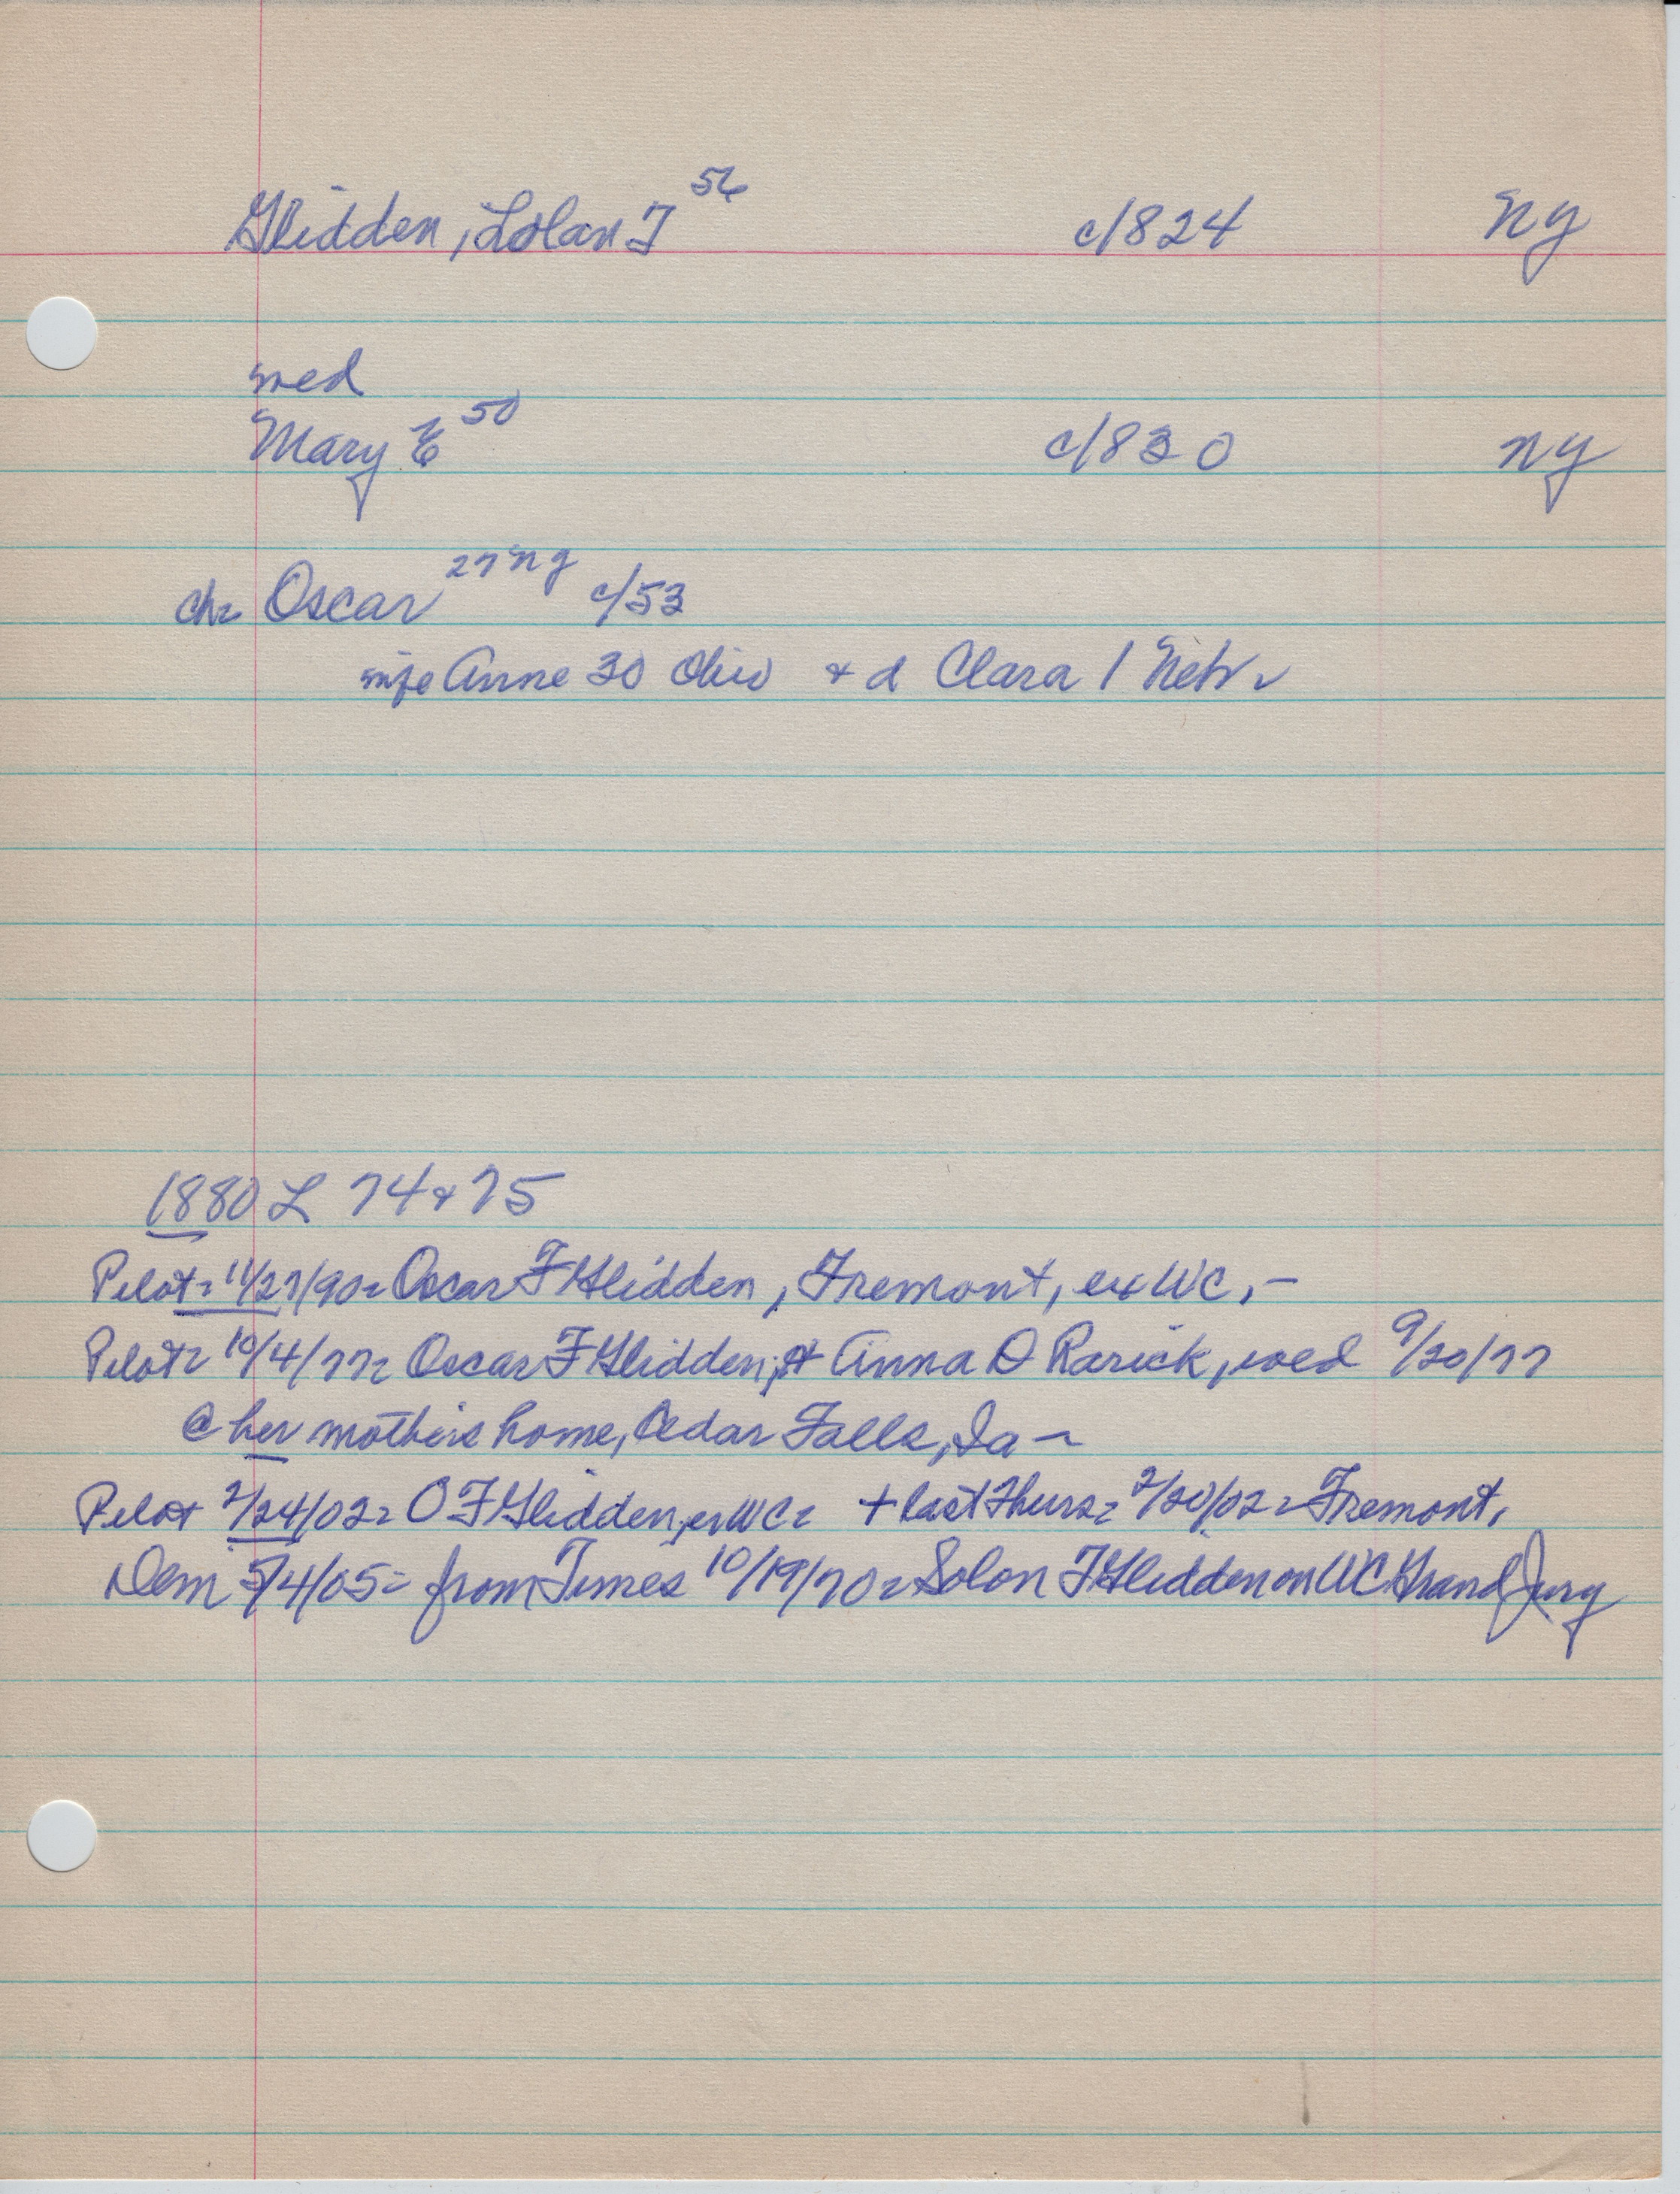 Glidden, Lolan T 56 c/824 NY
wed
Mary E 50 c/830 NY
ch- Oscar 27 NY c/53
wife Anne 30 Ohio + d Clara 1 Neb-
1880 L 74 & 75
Pilot- 11/27/90- Oscar F Glidden, Fremont, ex WC,-
Pilot- 10/4/77- Oscar F Glidden, & Anna D Rarick, wed 9/20/77
@ her mother's home, Cedar Falls, Ia -
Pilot 2/24/02- O F Glidden, ex WC- + last Thurs- 2/20/02- Fremont,
Dem 5/4/05- from Times 10/19/70- Solon T Glidden on WC Grand Jury